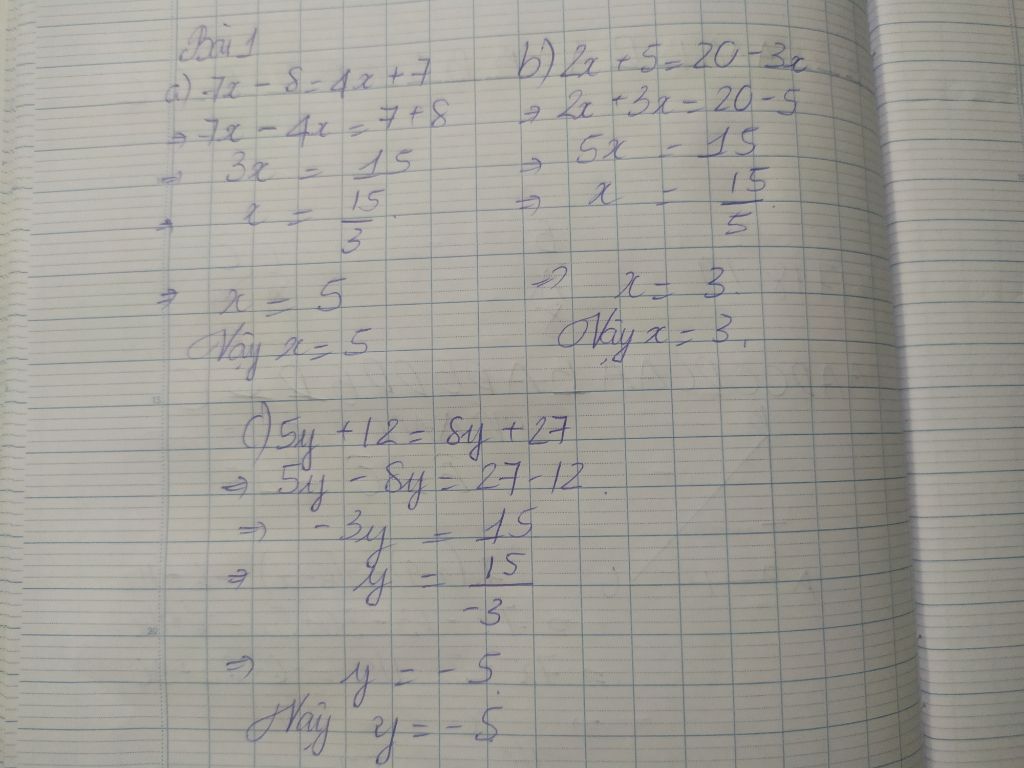 Bài 1
a) 7x - 8 = 4x + 7
⇒ 7x - 4x = 7 + 8
⇒ 3x = 15
⇒ x = 15/3
⇒ x = 5
Vậy x = 5
b) 2x + 5 = 20 - 3x
⇒ 2x + 3x = 20 - 5
⇒ 5x = 15
⇒ x = 15/5
⇒ x = 3
Vậy x = 3.
c) 5y + 12 = 8y + 27
⇒ 5y - 8y = 27 - 12.
⇒ -3y = 15
⇒ y = 15/-3
⇒ y = -5
Vậy y = -5